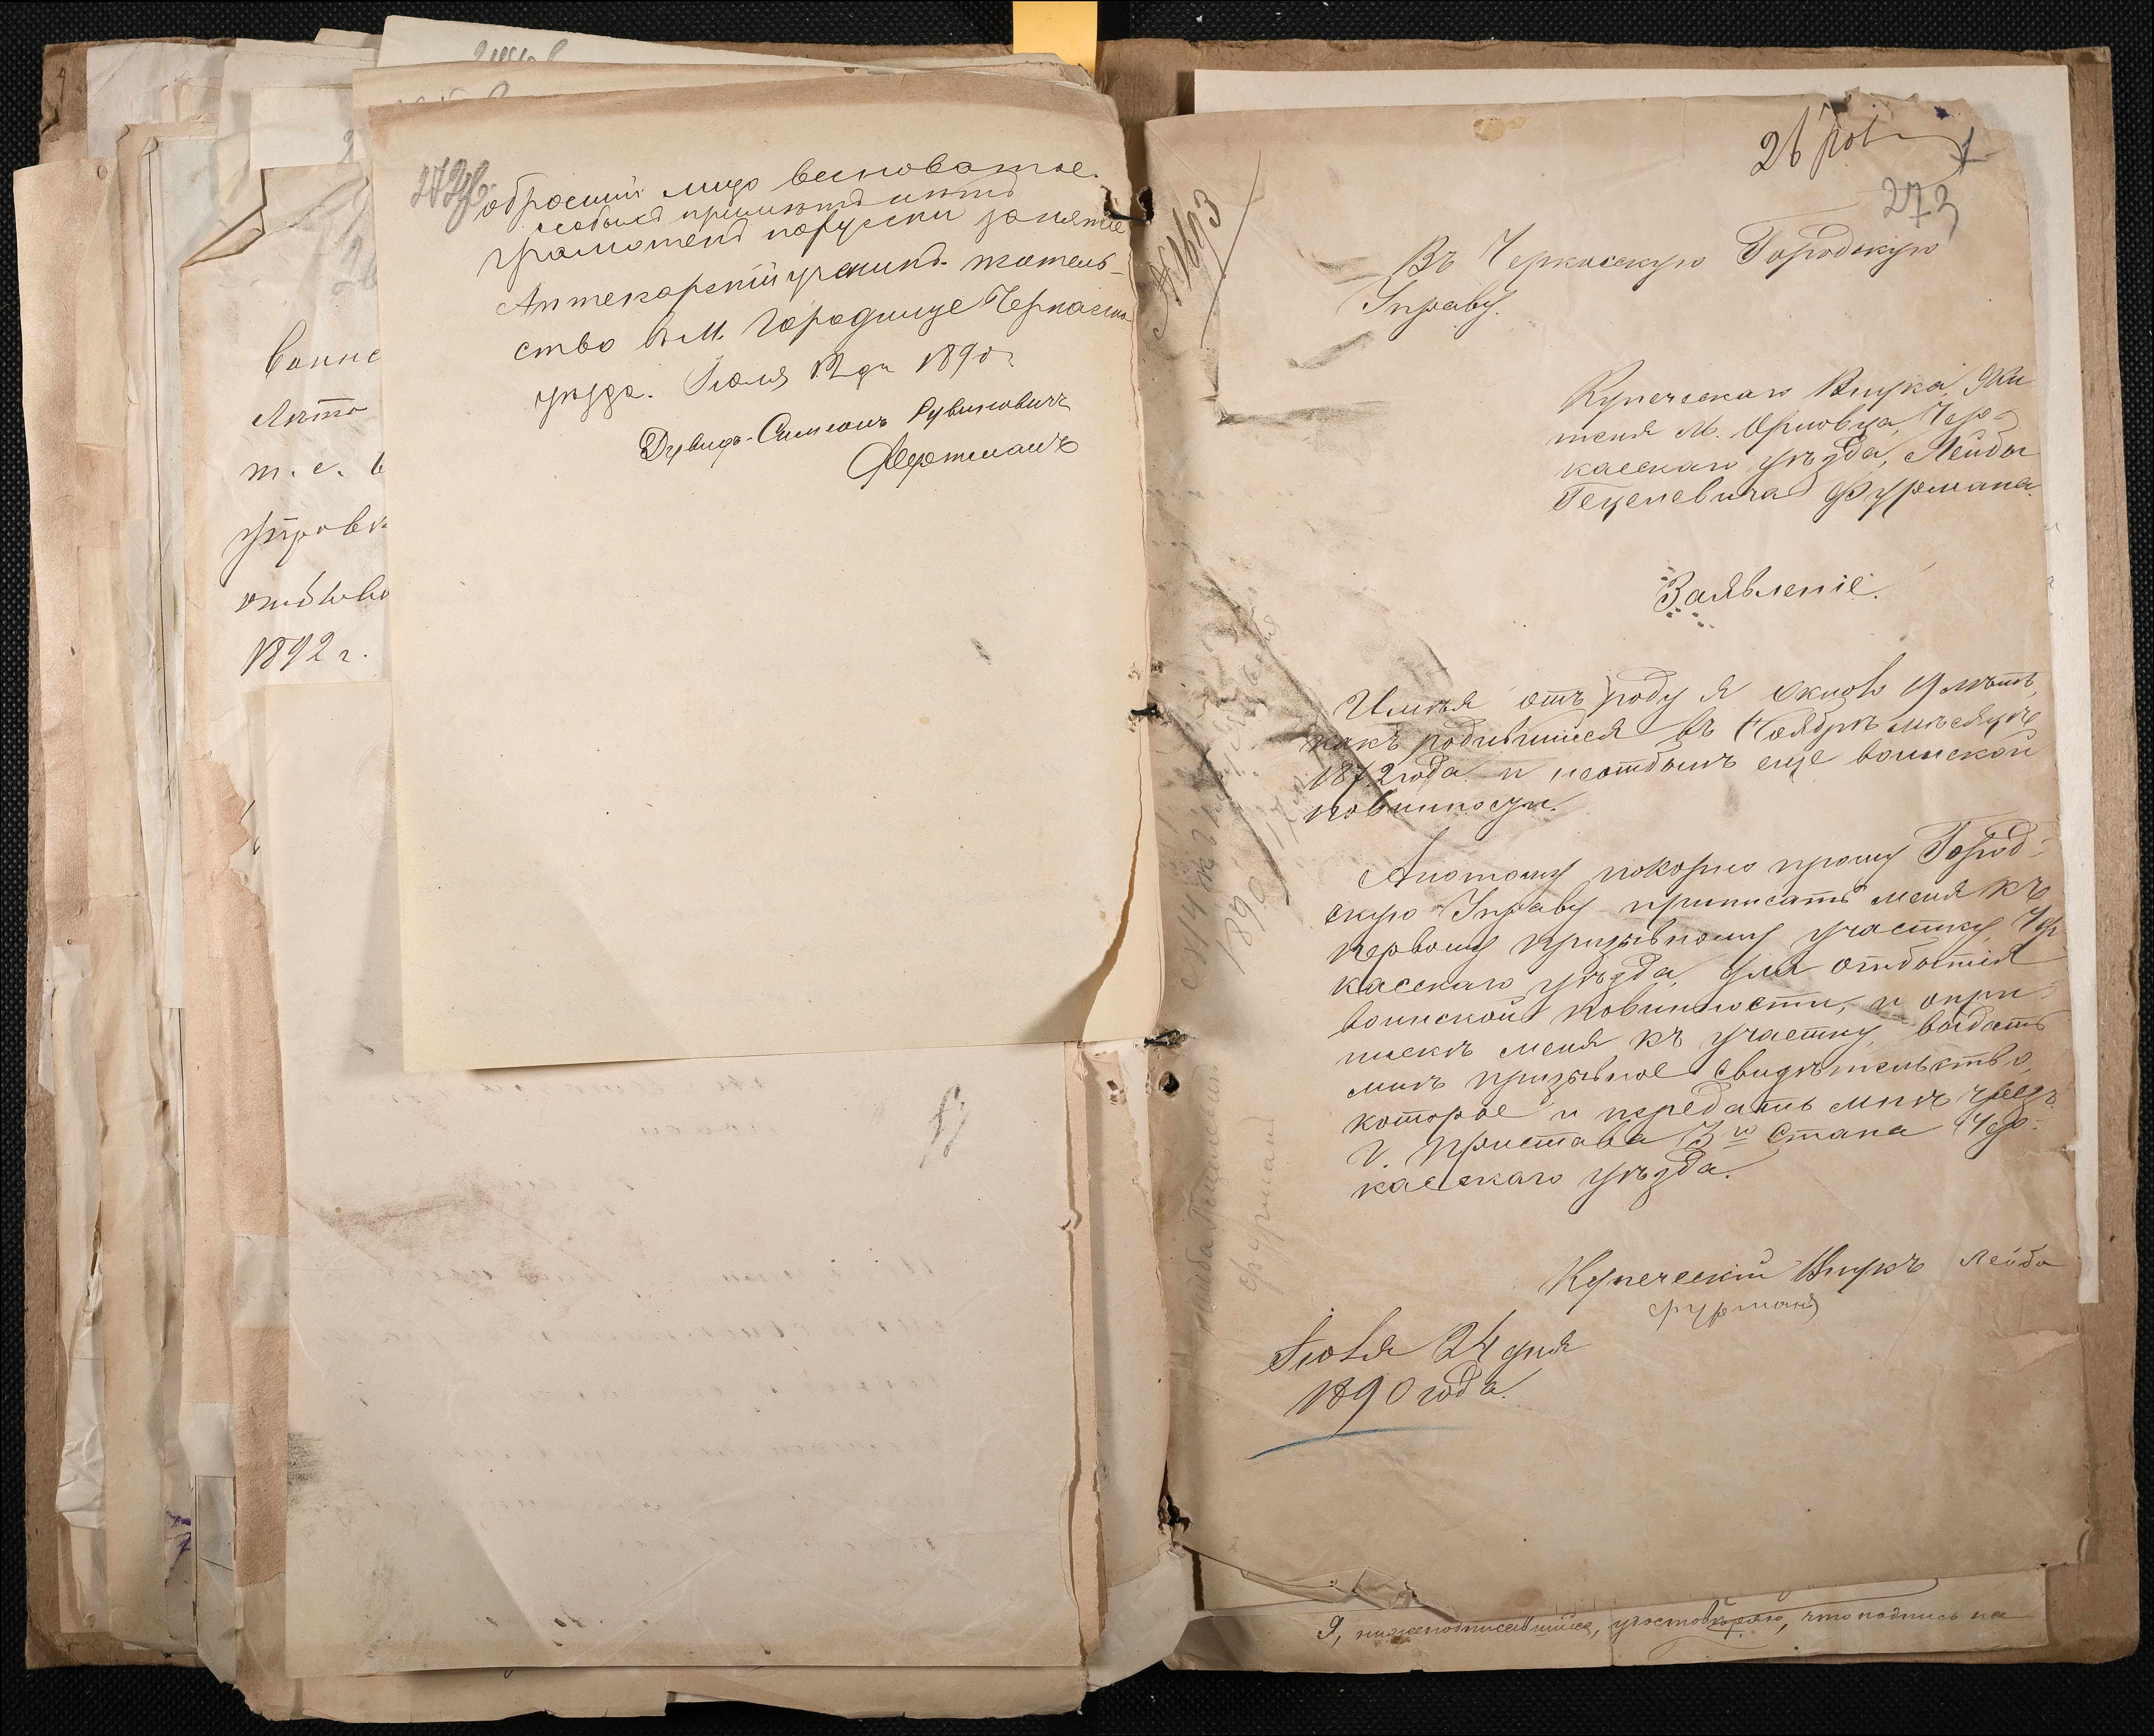 272об
обросший лицо весноватое.
особыхъ примѣтъ нѣтъ
грамотенъ порусски занятіе
Аптекарскій ученикъ. жатель-
ство въ М. Городище Черкасска
уѣзда. Іюля 12 дн 1890 г
Давидъ-Симеонъ Рувиновичъ
воинс
Лѣто
т. е. в
1892 г.
26
1
273
№ 1693
Въ Черкасскую Городскую
Управу.
Купеческаго Внука, Жи
теля М. Орловца, Чер-
касскаго уѣзда, Лейбы
Гецелевича Фурмана.
Заявленіе.
Имѣя отъ роду я около 19 лѣтъ,
какъ родившійся въ Ноябрѣ мѣсяцѣ
1872 года и неотбылъ еще воинской
повинности.
Апотому покорно прошу Город-
скую Управу приписать меня къ
первому призывному участку, Чер
касскаго уѣзда, для отбытія
воинской повинности, и опри-
пискѣ меня къ участку, выдать
мнѣ призывное свидѣтельство,
которое и передать мнѣ чрезъ
Г. Пристава 3го Стана Чер-
касскаго уѣзда.
Купеческій Внукъ Лейба
Фурманъ
Іюля 24 дня
1890 года.
1890
Лейба Гецелевъ
Фурманъ
Я, нижеподписавшійся, удостовѣряю, что подпись на